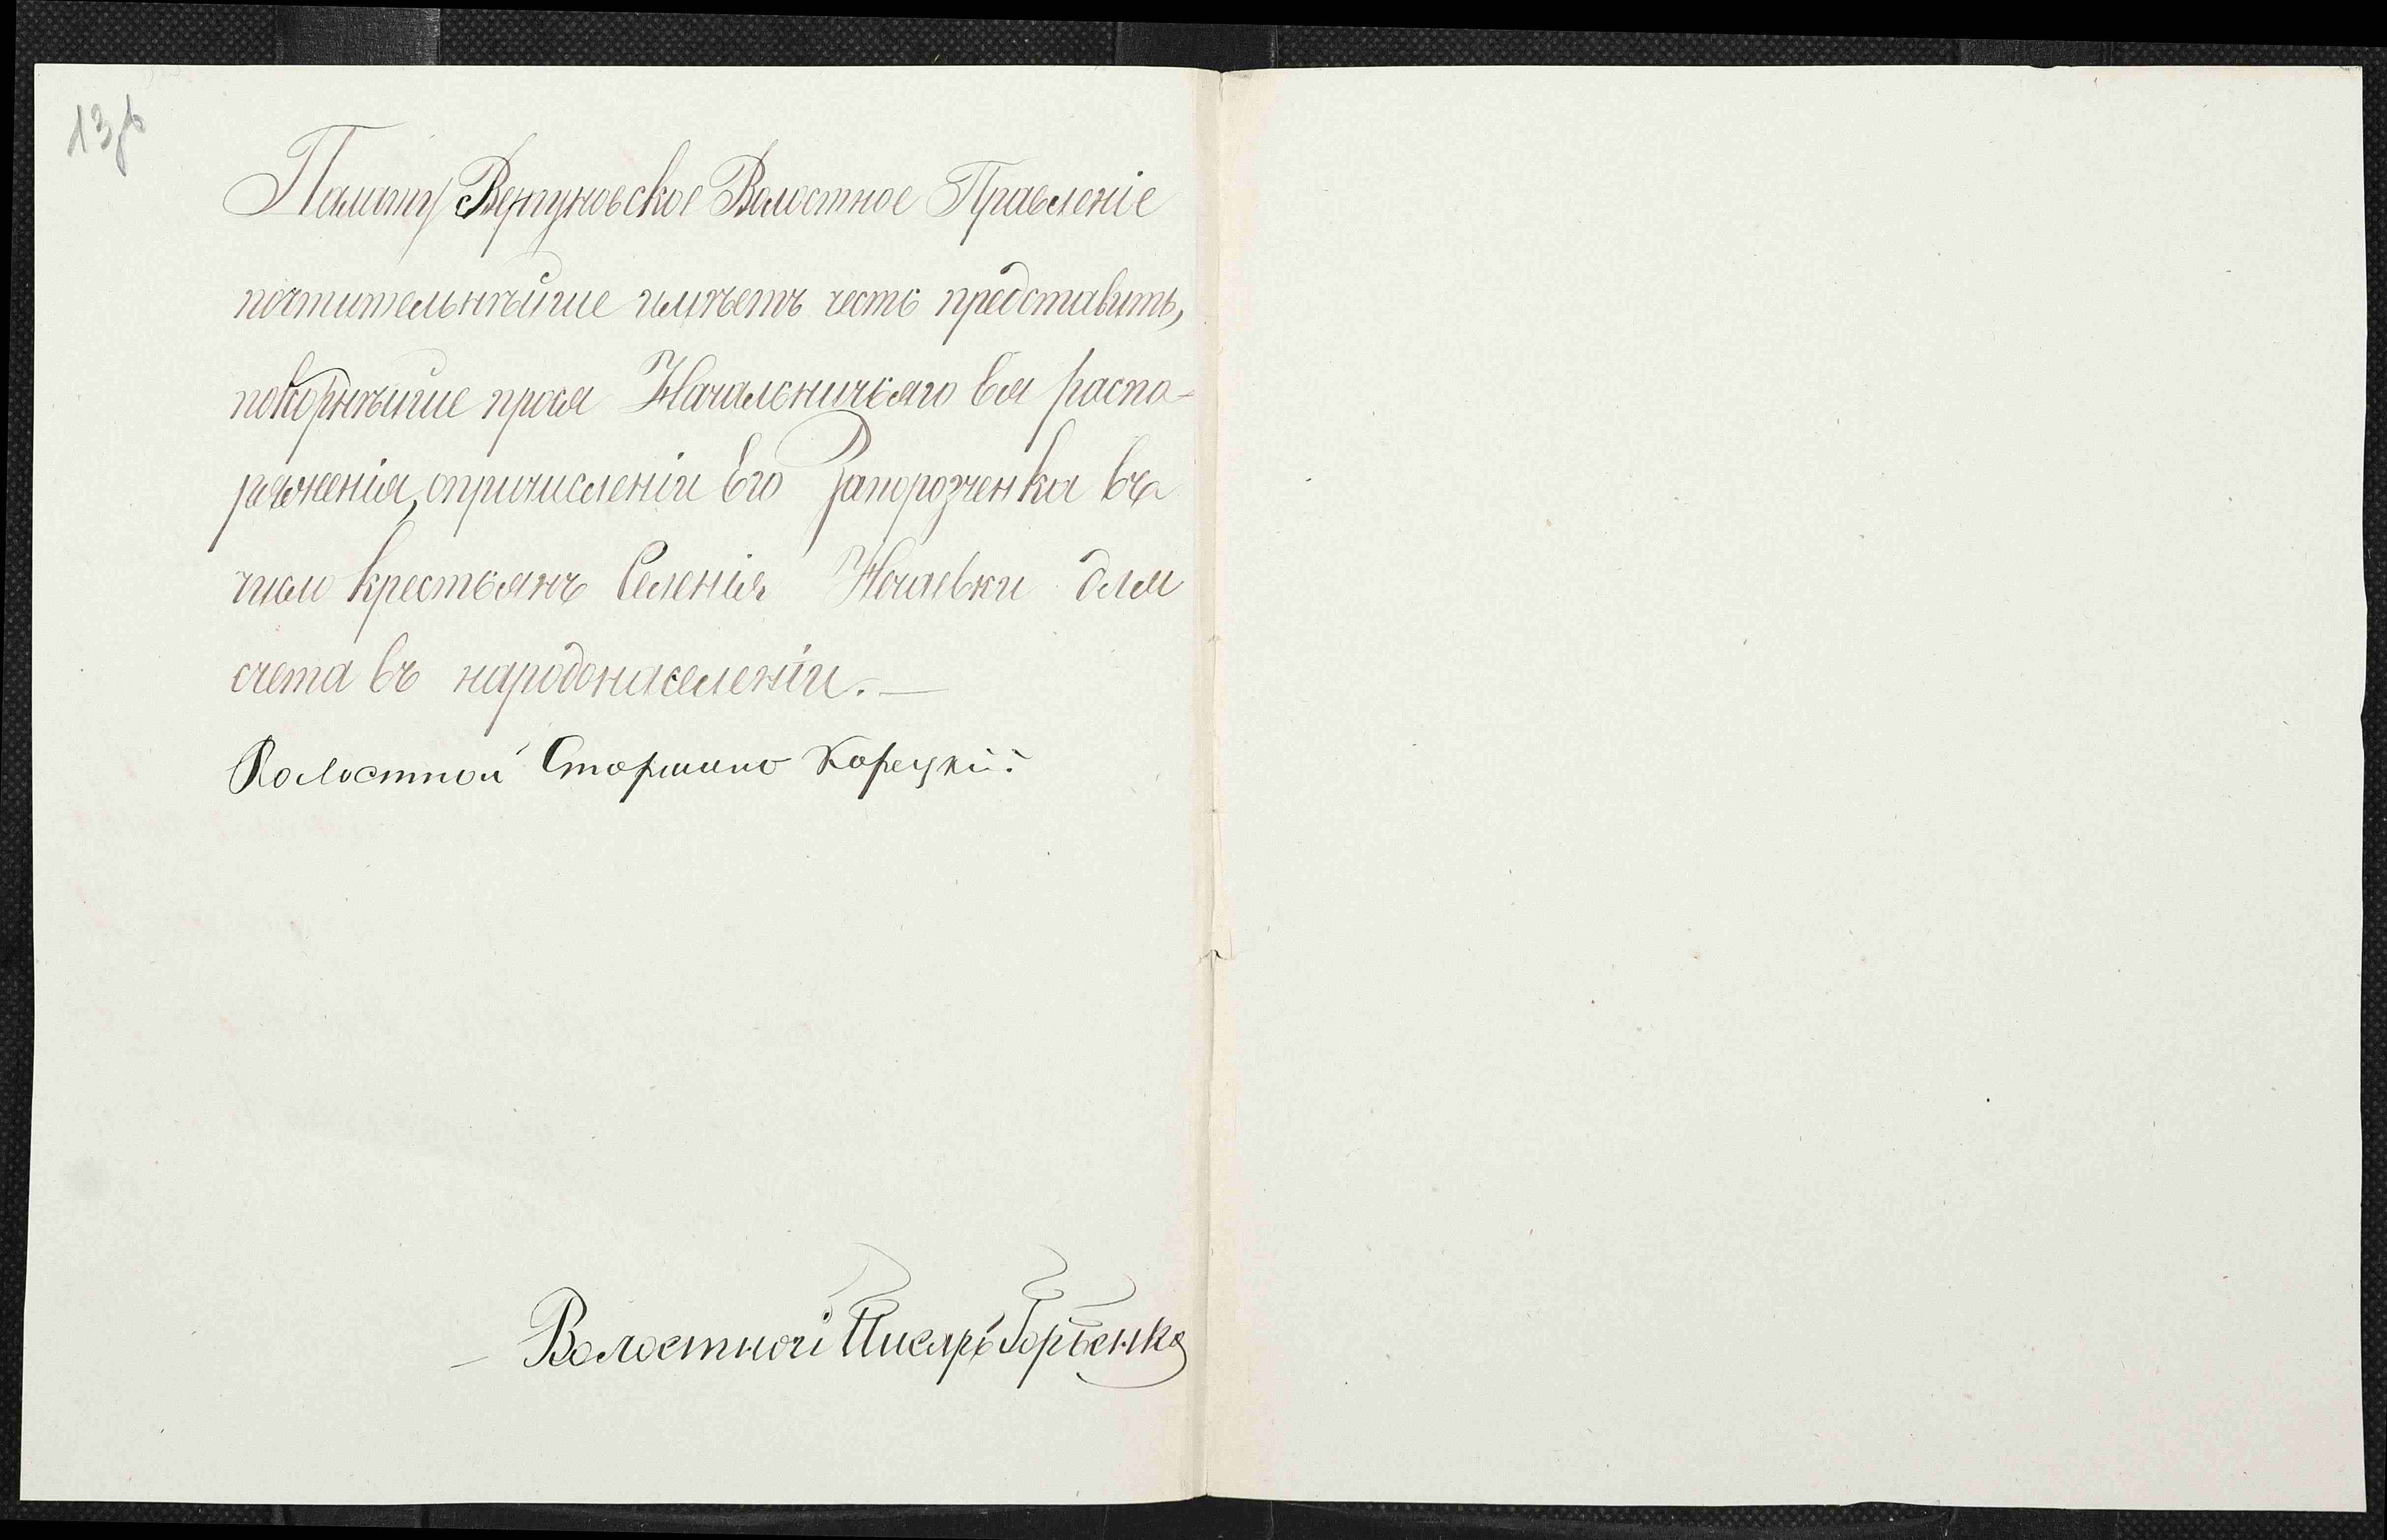 13об
Палату, Вергуновское Волостное Правленіе
почтительнѣйше имѣетъ честь представить,
покорнѣйше прося Начальничьяго Ея распо-
ряженія, опричисленіи Его Запорозченка въ
число крестьянъ Селенія Нечаевки для
счета въ народонаселеніи. —
Волостной Старшина Корецкій
— Волостной Писарь Горбенко